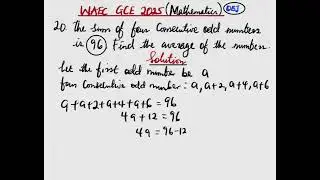 WAEC GCE 2025 (Mathematics) OBJ
20. The sum of four Consecutive odd numbers
is 96 Find the average of the numbers.
Solution
Let the first odd number be a
four Consecutive odd number: a, a+2, a+4, a+6
a+a+2+a+4+a+6 = 96
4a+12 = 96
4a = 96-12